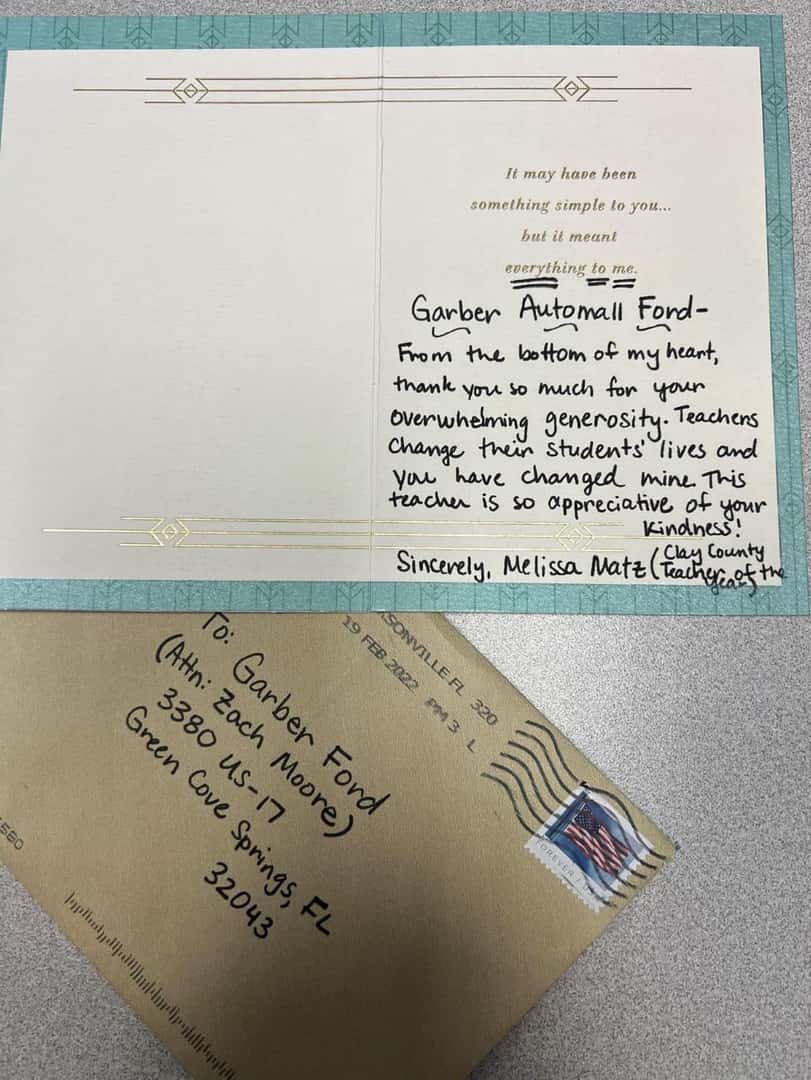 It may have been
something simple to you...
but it meant
everything to me.
Garber Automall Ford-
From the bottom of my heart,
thank you so much for your
overwhelming generosity. Teachers
change their students' lives and
you have changed mine. This
teacher is so appreciative of your
kindness!
Sincerely, Melissa Matz (Clay County
Teacher of the
Year)
To: Garber Ford
(Attn: Zach Moore)
3380 US-17
Green Cove Springs, FL
32043
SONVILLE FL 320
19 FEB 2022 PM 3 L
FOREVER